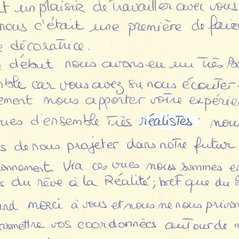 t un plaisir de travailler avec vous
nous c'était une première de faire
e décoratrice.
début nous avons eu un très bo
ble car vous avez su nous écouter
ement nous apporter votre expérien
ues d'ensemble très réalistes nou
s de nous projeter dans notre futur
onnement. Via ces vues nous sommes en
s du rêve à la Réalité; bref que du b
and merci à vous et nous ne nous privon
nsmettre vos coordonnées autour de n